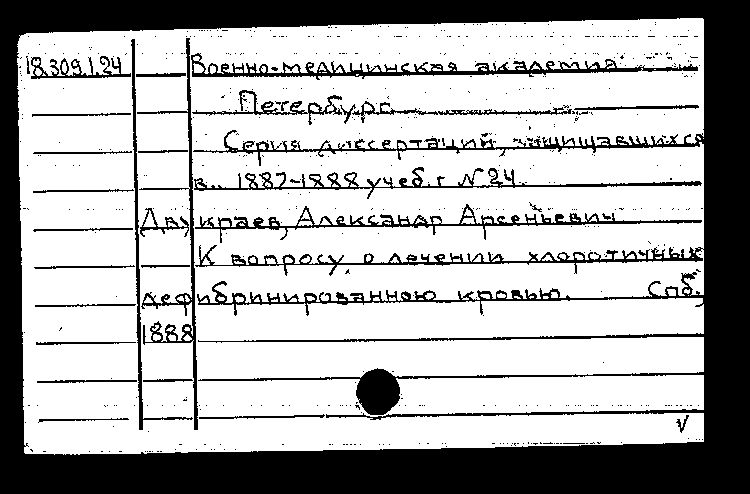 18.309.1.24 Военно-медицинская академия
Петербург
Серия диссертаций, защищавшихся
в.. 1887-1888 учеб. г N 24.
Двукраев, Александр Арсеньевич
К вопросу о лечении хлоротичных
дефибринированною кровью. Спб.,
1888
V